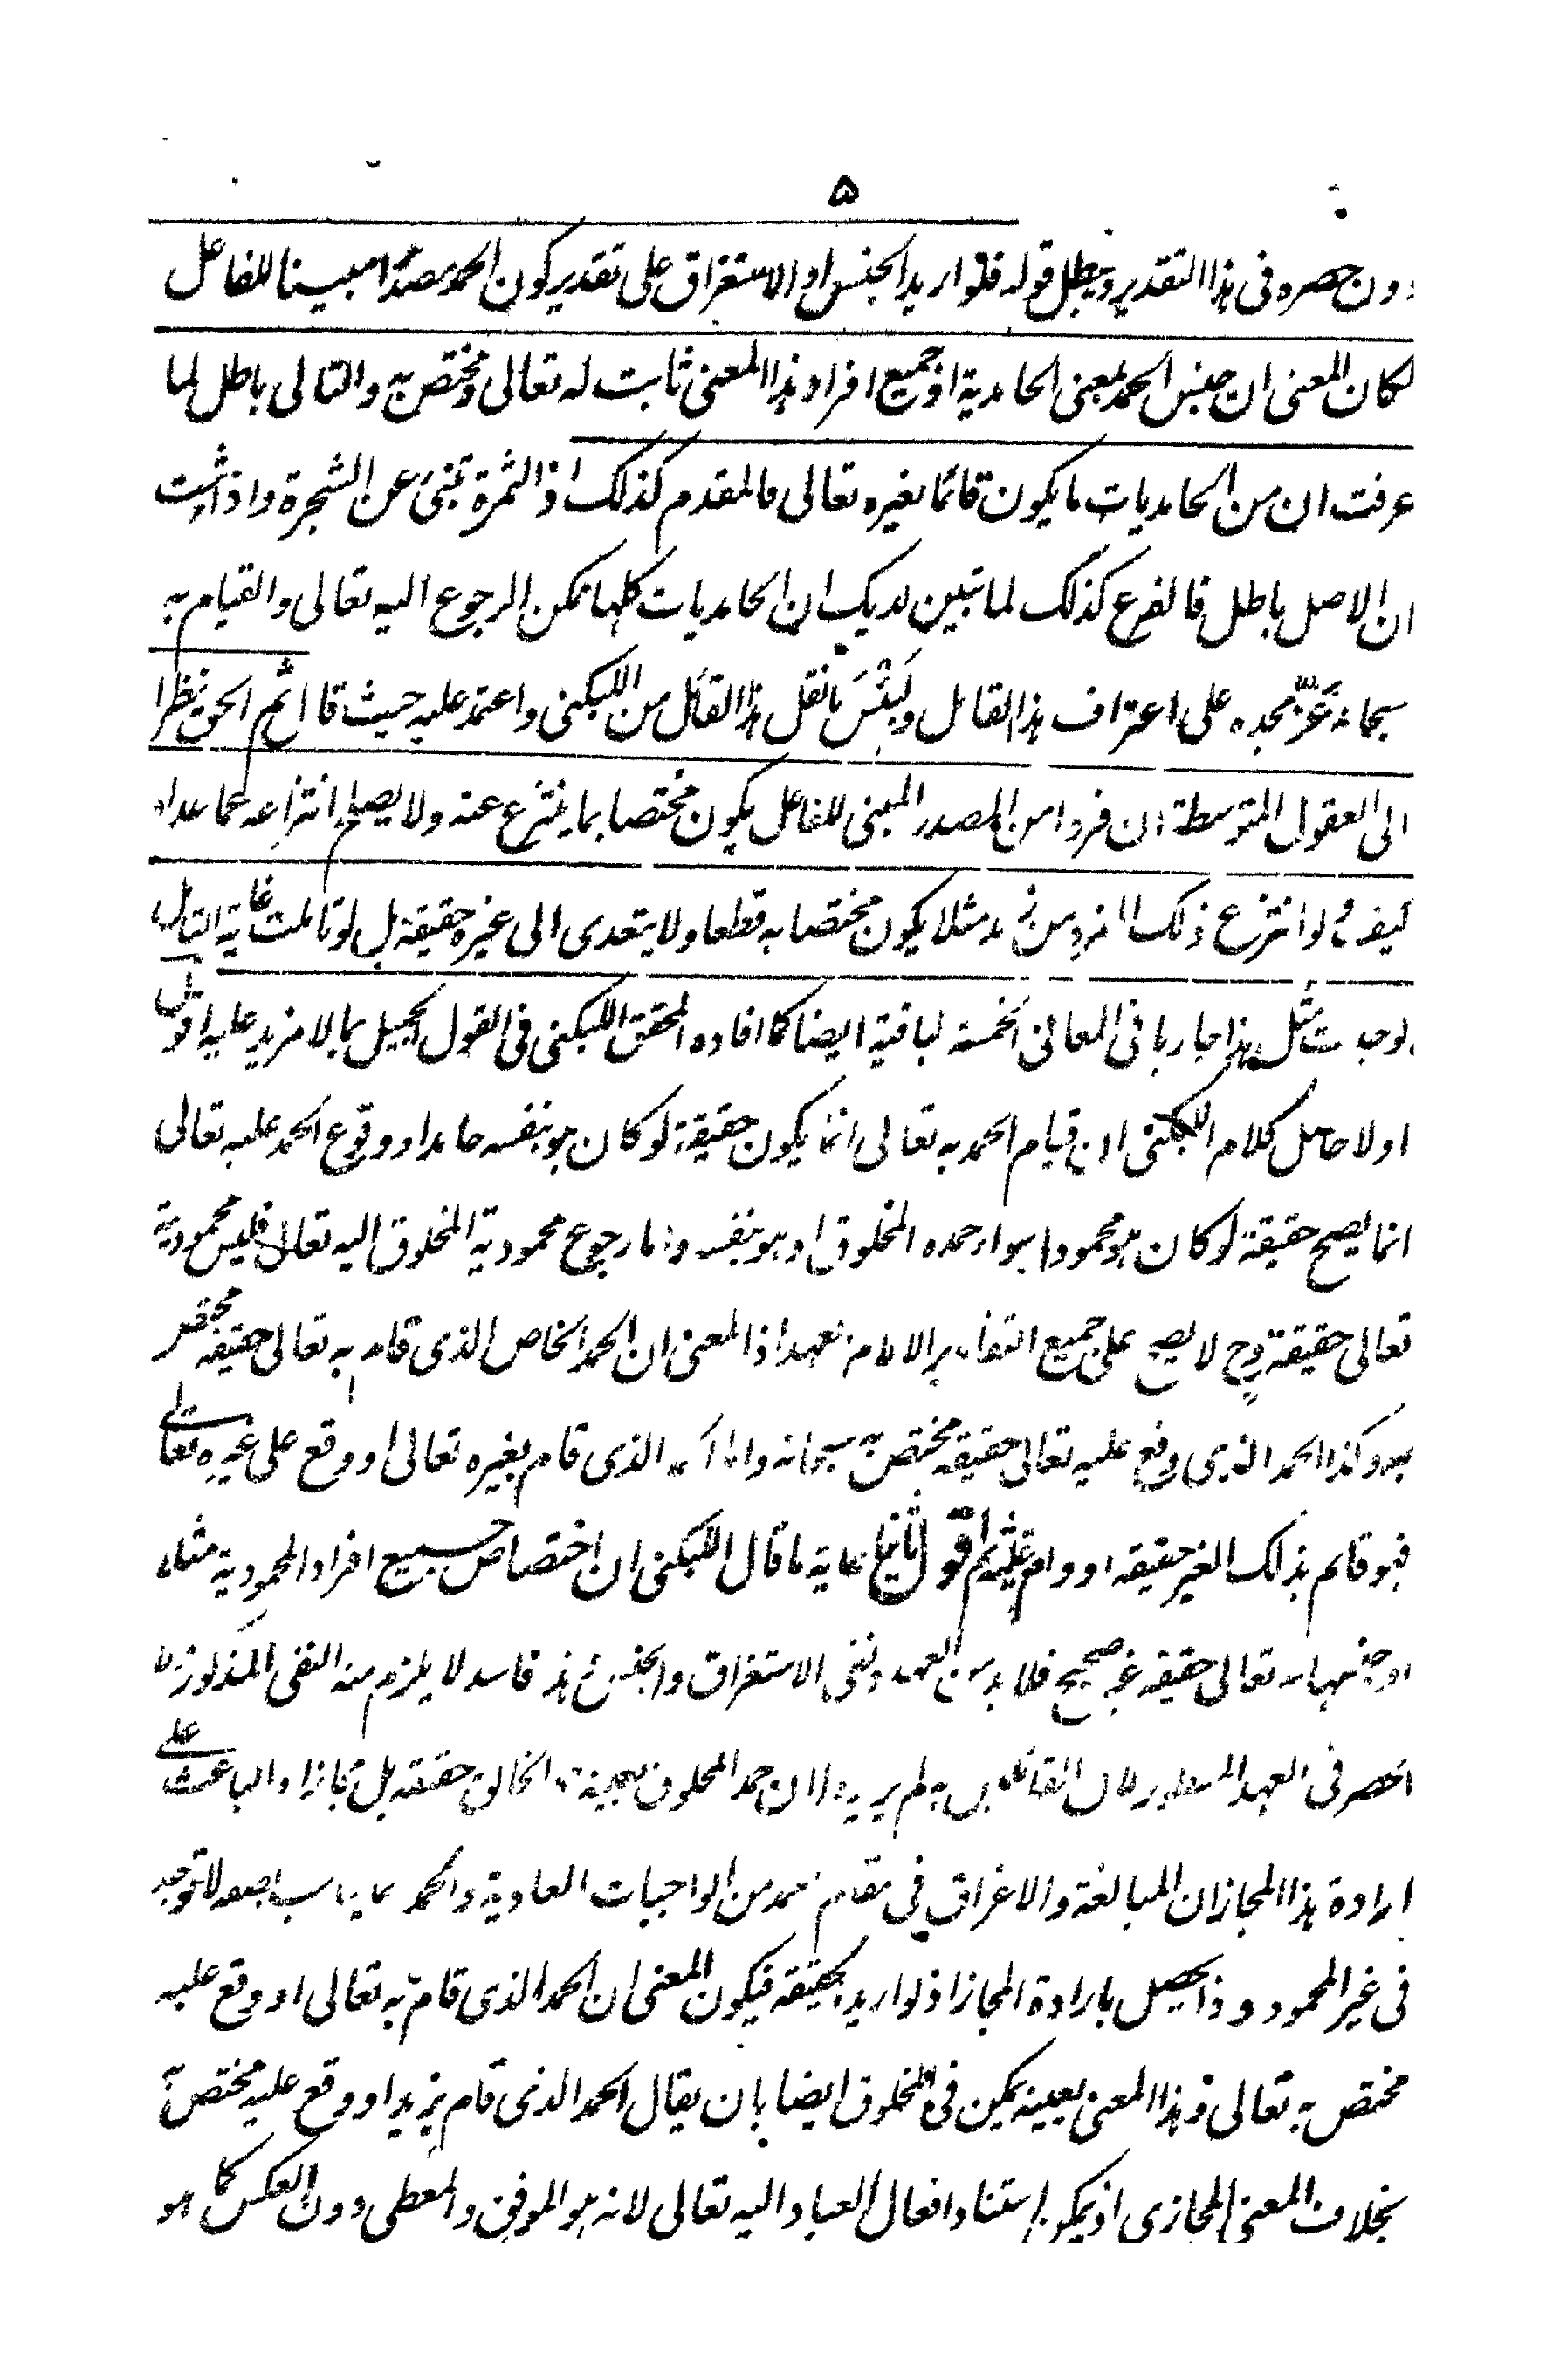 ۵
دون حصره فى هذا التقدير ويبطل قوله فلو اريد الجنس او الاستغراق على تقدير كون الحمد مصدرا مبنيا للفاعل
لكان المعنى ان جنس الحمد بمعنى الحامدية او جميع افراد هذا المعنى ثابت له تعالى ومختص به والتالى باطل لما
عرفت ان من الحامديات ما يكون قائما بغيره تعالى فالمقدم كذلك اذ الثمرة تنبئ عن الشجرة واذا ثبت
ان الاصل باطل فالفرع كذلك لما تبين لديك ان الحامديات كلها يمكن الرجوع اليه تعالى والقيام به
سبحانه عز مجده على اعتراف هذا القائل ولبئس ما نقل هذا القائل من اللبكنى واعتمد عليه حيث قال ثم الحق نظرا
الى العقول المتوسطة ان فردا من المصدر المبنى للفاعل يكون مختصا بما ينتزع عنه ولا يصلح انتزاعه عما عداه
كيف ولو انتزع ذلك الفرد من زيد مثلا يكون مختصا به قطعا ولا يتعدى الى غيره حقيقة بل لو تاملت غاية التامل
لوجدت مثل هذا جاريا فى المعانى الخمسة الباقية ايضا كما افاده المحقق اللبكنى فى القول الجميل بما لا مزيد عليه اقول
اولا حاصل كلام اللبكنى ان قيام الحمد به تعالى انما يكون حقيقة لو كان هو بنفسه حامدا ووقوع الحمد عليه تعالى
انما يصح حقيقة لو كان هو محمودا سواء حمده المخلوق او هو بنفسه واما رجوع محمودية المخلوق اليه تعالى فليس محمودية
تعالى حقيقة وح لا يصح على جميع التقادير الا لام العهد اذ المعنى ان الحمد الخاص الذى قام به تعالى حقيقة مختص
به وكذا الحمد الذى وقع عليه تعالى حقيقة مختص به سبحانه واما الذى قام بغيره تعالى او وقع على غيره تعالى
فهو قائم بذلك الغير حقيقة او واقع عليه ثم اقول ثانيا غاية ما قال اللبكنى ان اختصاص جميع افراد المحمودية مثلا
او جنسها به تعالى حقيقة غير صحيح فلا بد من العهد ونفى الاستغراق والجنس هذا فاسد لا يلزم منه النفى المذكور
الحصر فى العهد لان القائلين به لم يريدوا ان حمد المخلوق الخالق حقيقة بل مجازا والباعث على
ارادة هذا المجاز ان المبالغة والاغراق فى مقام الحمد من الواجبات العادية والحمد بما يناسب لا توجد
فى غير المحمود وذا يحصل بارادة المجاز اذ لو اريد الحقيقة فيكون المعنى ان الحمد الذى قام به تعالى او وقع عليه
مختص به تعالى وهذا المعنى بعينه يمكن فى المخلوق ايضا بان يقال الحمد الذى قام بزيد او وقع عليه مختص به
بخلاف المعنى المجازى اذ يمكن استناد افعال العباد اليه تعالى لانه هو الموفق والمعطى دون العكس كما هو